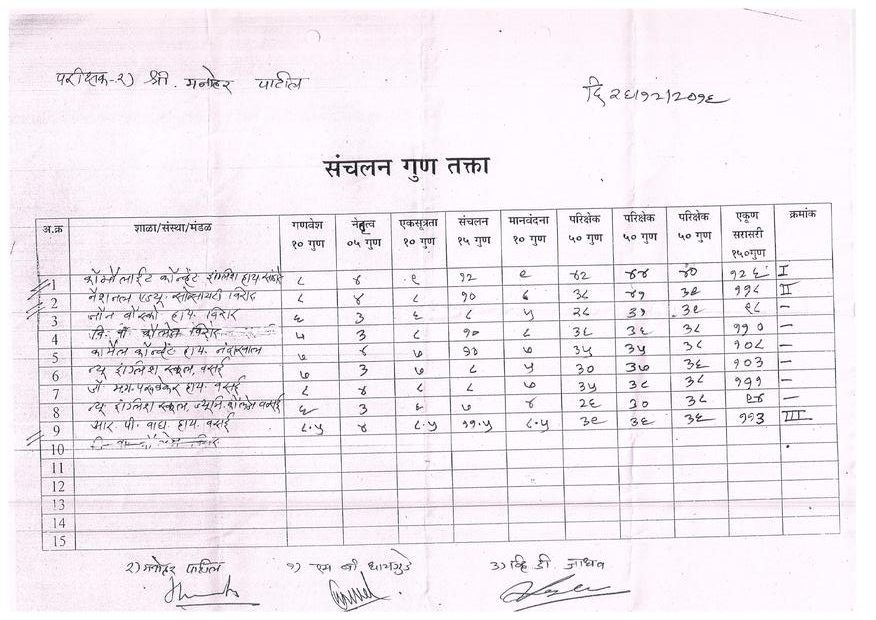 परीक्षक-२) श्री. मनोहर पाटील
दि २६/१२/२०१६
संचलन गुण तक्ता
अ.क्र शाळा/संस्था/मंडळ गणवेश १० गुण नेतृत्व ०५ गुण एकसूत्रता १० गुण संचलन १५ गुण मानवंदना १० गुण परिक्षेक ५० गुण परिक्षेक ५० गुण परिक्षेक ५० गुण एकूण सरासरी १५०गुण क्रमांक
1 कॉन्व्हेंट इंग्लिश हाय ८ ४ ९ १२ ९ ४२ ४४ ४० १२६ I
2 नॅशनल एज्यु. सोसायटी विरार ८ ४ ८ १० ३८ ४१ ३९ ११८ II
3 डॉन बॉस्को हाय. विरार ६ ३ ६ ८ ५ २८ ३१ ३९ ९८ –
4 वि. वी. कॉलेज विरार ५ ३ ८ १० ८ ३८ ३६ ३८ ११० –
5 कार्मेल कॉन्व्हेंट हाय. ७ ४ ७ १० ७ ३५ ३५ ३८ १०८ –
6 न्यू इंग्लिश स्कूल. वसई ७ ३ ७ ८ ५ ३० ३७ ३६ १०३ –
7 हाय. वसई ८ ४ ८ ८ ७ ३५ ३८ ३८ १११ –
8 न्यू इंग्लिश स्कूल. कॉलेज वसई ६ ३ ६ ७ ४ २६ ३० ३८ ९४ –
9 आर. पी. वाघ. हाय. वसई ८.५ ४ ८.५ ११.५ ८.५ ३९ ३६ ३६ ११३ III
10
11
12
13
14
15
२) मनोहर पाटील १) एस बी धायगुडे ३) व्हि. डी. जाधव